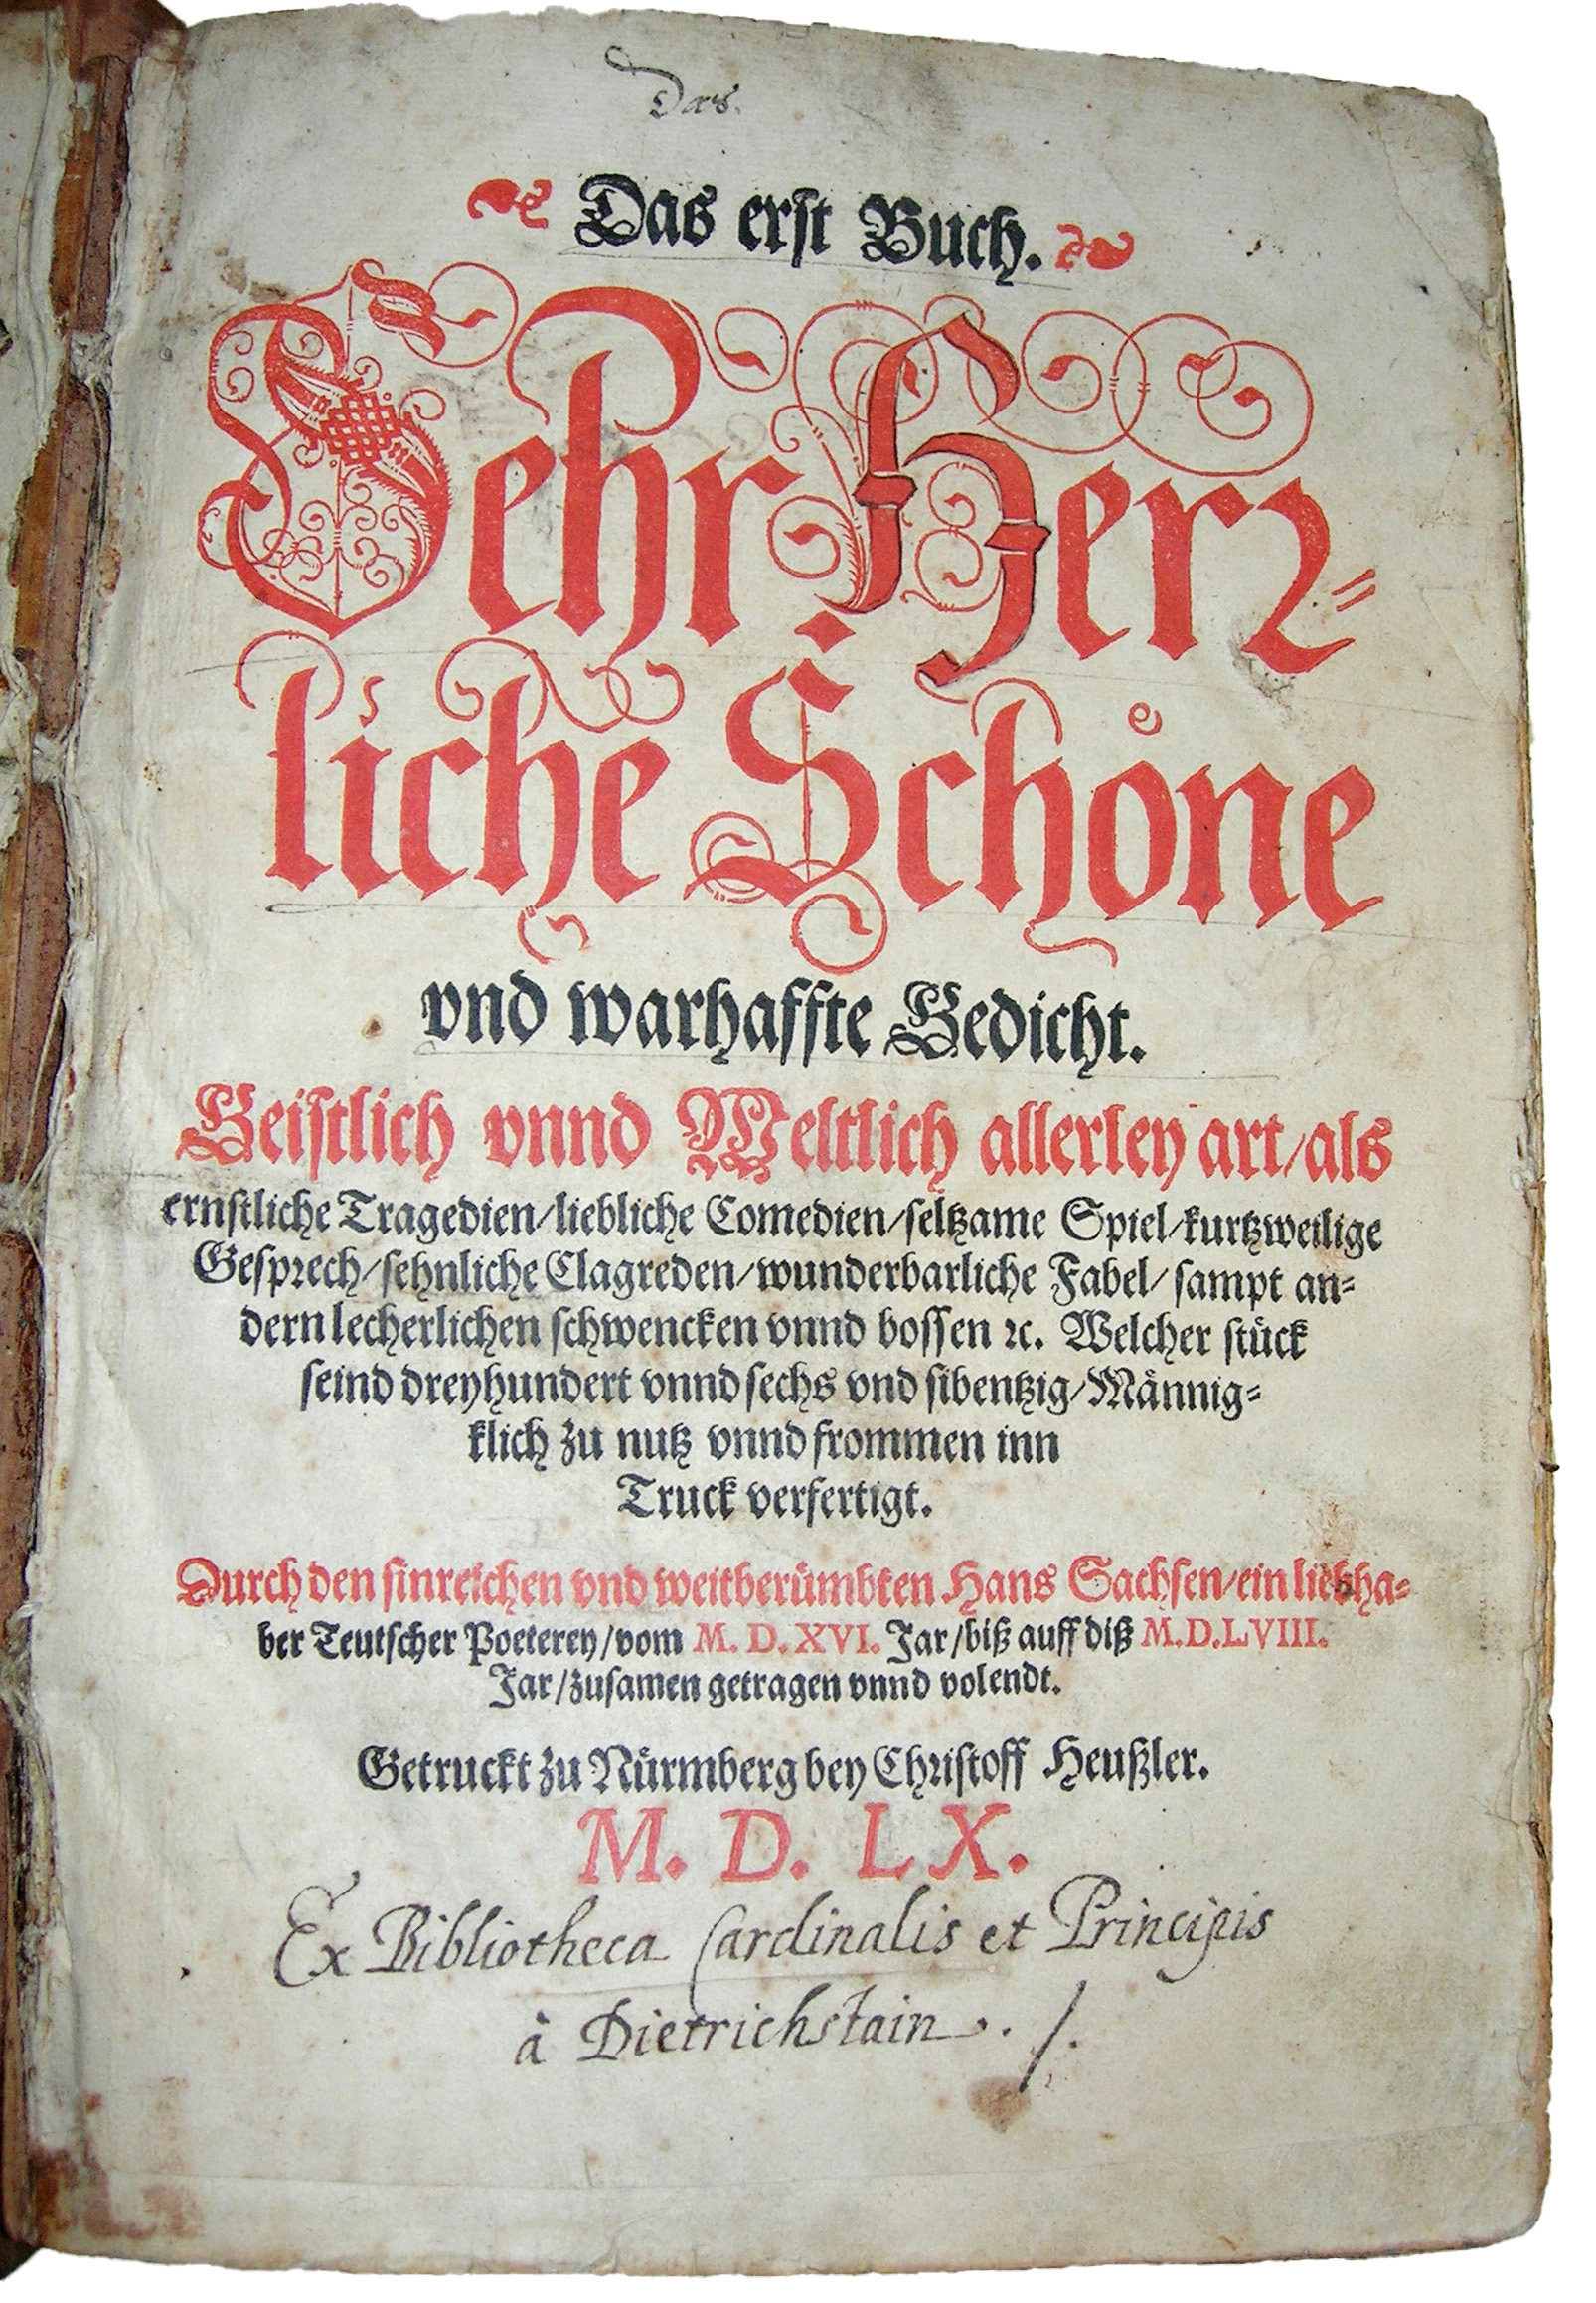 Das
Das erst Buch.
Sehr Herꝛ⸗
liche Schoͤne
vnd warhaffte Gedicht.
Geistlich vnnd Weltlich allerley art/als
ernstliche Tragedien/liebliche Comedien/seltzame Spiel/kurtzweilige
Gespꝛech/sehnliche Clagreden/wunderbarliche Fabel/sampt an⸗
dern lecherlichen schwencken vnnd bossen ꝛc. Welcher stuͤck
seind dreyhundert vnnd sechs vnd sibentzig/Maͤnnig⸗
klich zu nutz vnnd frommen inn
Truck verfertigt.
Durch den sinreichen vnd weitberuͤmbten Hans Sachsen/ein liebha⸗
ber Teutscher Poeterey/vom M. D. XVI. Jar/biß auff diß M.D.LVIII.
Jar/zusamen getragen vnnd volendt.
Getruckt zu Nuͤrmberg bey Chꝛistoff Heußler.
M. D. LX.
Ex Bibliotheca Cardinalis et Principis
à Dietrichstain . /.